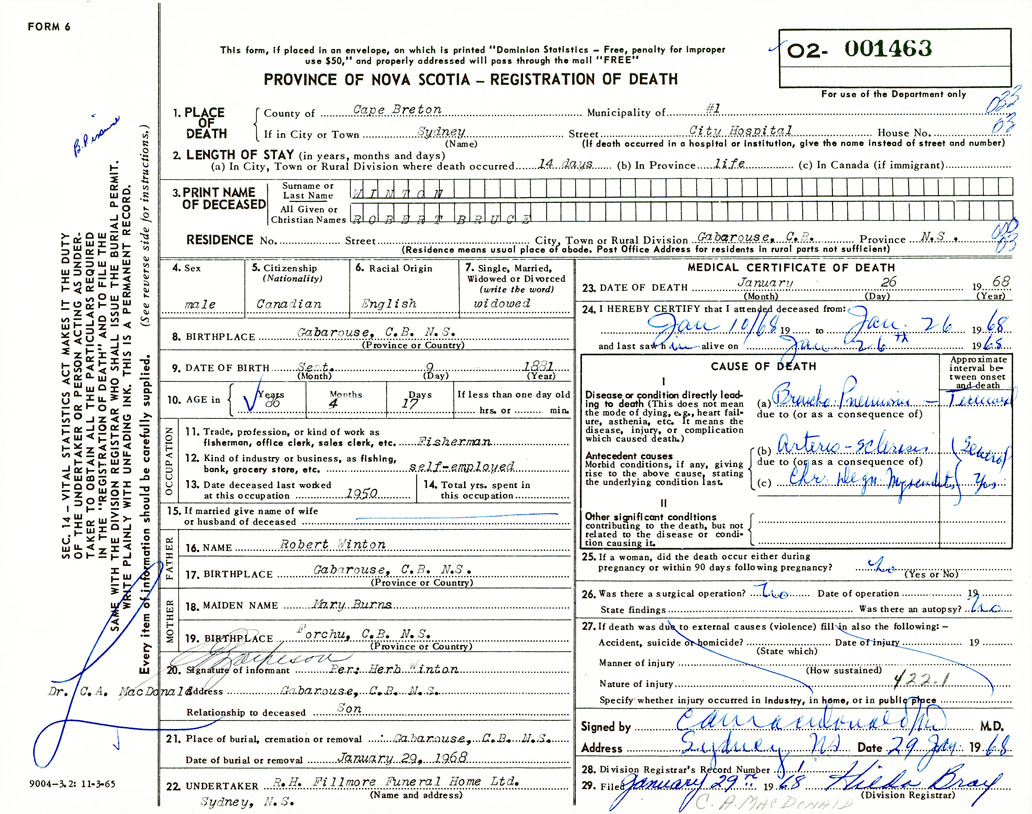 FORM 6
This form, if placed in an envelope, on which is printed "Dominion Statistics – Free, penalty for improper
use $50," and properly addressed will pass through the mail "FREE"
PROVINCE OF NOVA SCOTIA – REGISTRATION OF DEATH
02- 001463
For use of the Department only
1. PLACE OF DEATH County of Cape Breton Municipality of #1
If in City or Town Sydney Street City Hospital House No.
(Name) (If death occurred in a hospital or institution, give the name instead of street and number)
03
2. LENGTH OF STAY (in years, months and days)
(a) In City, Town or Rural Division where death occurred 14 days (b) In Province life (c) In Canada (if immigrant)
3. PRINT NAME OF DECEASED
Surname or Last Name WINTON
All Given or Christian Names ROBERT BRUCE
RESIDENCE No. Street City, Town or Rural Division Gabarouse, C.B. Province N.S.
(Residence means usual place of abode. Post Office Address for residents in rural parts not sufficient)
03
4. Sex
male
5. Citizenship
(Nationality)
Canadian
6. Racial Origin
English
7. Single, Married,
Widowed or Divorced
(write the word)
widowed
8. BIRTHPLACE Gabarouse, C.B. N.S.
(Province or Country)
9. DATE OF BIRTH Sept. 9 1881
(Month) (Day) (Year)
10. AGE in Years 86 Months 4 Days 17 If less than one day old
hrs. or min.
OCCUPATION
11. Trade, profession or kind of work as
fisherman, office clerk, sales clerk, etc. Fisherman
12. Kind of industry or business, as fishing,
bank, grocery store, etc. self-employed
13. Date deceased last worked
at this occupation 1950
14. Total yrs. spent in
this occupation
15. If married give name of wife
or husband of deceased
FATHER
16. NAME Robert Winton
17. BIRTHPLACE Gabarouse, C.B. N.S.
(Province or Country)
MOTHER
18. MAIDEN NAME Mary Burns
19. BIRTHPLACE Forchu, C.B. N.S.
(Province or Country)
20. Signature of informant Per: Herb Winton
Address Gabarouse, C.B. N.S.
Relationship to deceased Son
21. Place of burial, cremation or removal Gabarouse, C.B. N.S.
Date of burial or removal January 29, 1968
22. UNDERTAKER R.H. Fillmore Funeral Home Ltd.
(Name and address)
Sydney, N.S.
MEDICAL CERTIFICATE OF DEATH
23. DATE OF DEATH January 26 1968
(Month) (Day) (Year)
24. I HEREBY CERTIFY that I attended deceased from:
Jan 10/68 19 to Jan. 26 1968
and last saw him alive on Jan 26th 1968
CAUSE OF DEATH
Approximate
interval be-
tween onset
and death
I
Disease or condition directly lead-
ing to death (This does not mean
the mode of dying, e.g., heart fail-
ure, asthenia, etc. It means the
disease, injury, or complication
which caused death.)
(a) Broncho Pneumonia – Terminal
due to (or as a consequence of)
Antecedent causes
Morbid conditions, if any, giving
rise to the above cause, stating
the underlying condition last.
(b) Arterio-sclerosis Several
due to (or as a consequence of)
(c) Chr. Degn. Myocarditis Yrs.
II
Other significant conditions
contributing to the death, but not
related to the disease or condi-
tion causing it.
25. If a woman, did the death occur either during
pregnancy or within 90 days following pregnancy? no
(Yes or No)
26. Was there a surgical operation? No Date of operation 19
State findings Was there an autopsy? No
27. If death was due to external causes (violence) fill in also the following:–
Accident, suicide or homicide? Date of injury 19
(State which)
Manner of injury
(How sustained)
Nature of injury 422.1
Specify whether injury occurred in industry, in home, or in public place
Signed by C A MacDonald MD M.D.
Address Sydney NS Date 29 Jan 1968
28. Division Registrar's Record Number 1
29. Filed January 29th 1968 Hilda Bray
(Division Registrar)
C. A. MACDONALD
SEC. 14 – VITAL STATISTICS ACT MAKES IT THE DUTY
OF THE UNDERTAKER OR PERSON ACTING AS UNDER-
TAKER TO OBTAIN ALL THE PARTICULARS REQUIRED
IN THE "REGISTRATION OF DEATH" AND TO FILE THE
SAME WITH THE DIVISION REGISTRAR WHO SHALL ISSUE THE BURIAL PERMIT.
WRITE PLAINLY WITH UNFADING INK. THIS IS A PERMANENT RECORD.
Every item of information should be carefully supplied. (See reverse side for instructions.)
Dr. C.A. MacDonald
9004–3.2: 11-3-65